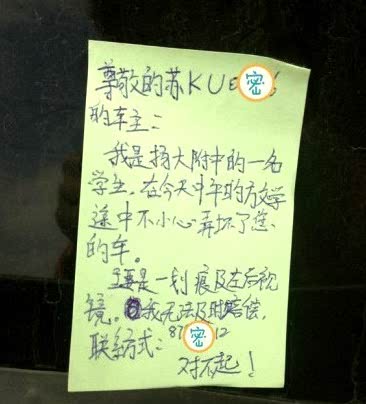 尊敬的苏KUE密
的车主：
我是扬大附中的一名
学生，在今天中午的放学
途中不小心弄坏了您
的车。
主要是一划痕及左后视
镜。我无法及时赔偿，
联系方式：87密12
对不起！